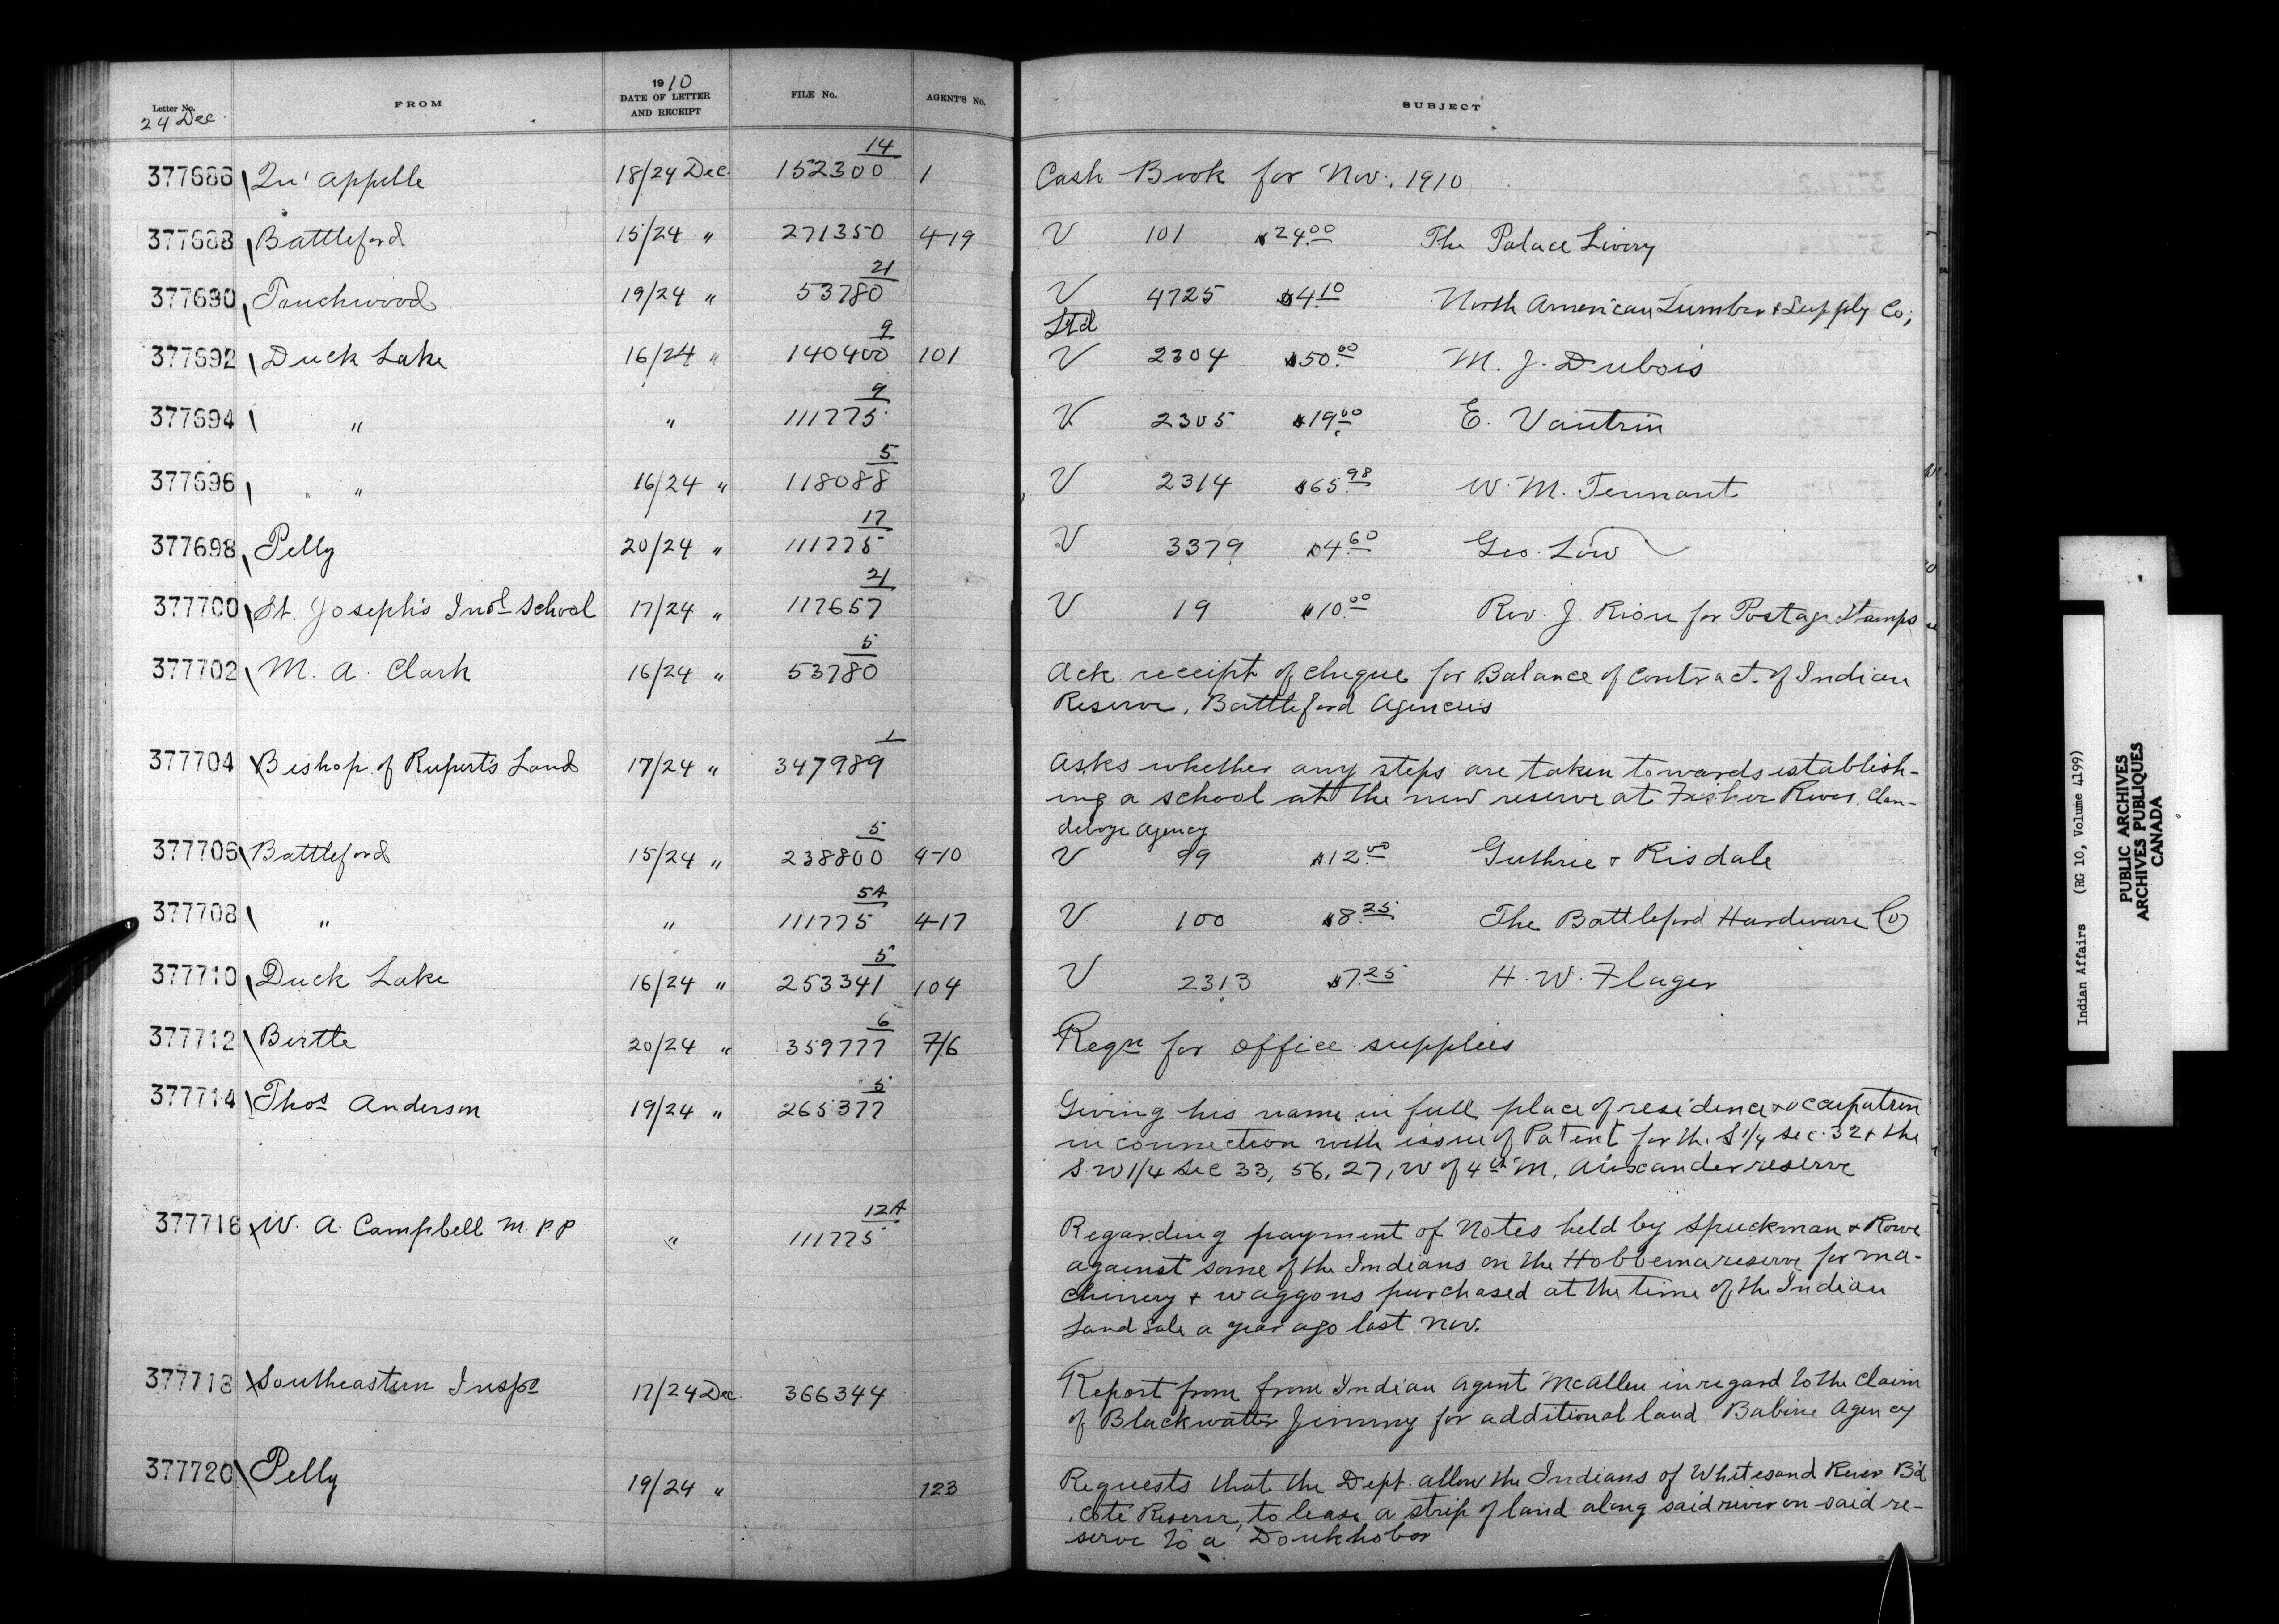 Letter No.
24 Dec.
FROM
1910
DATE OF LETTER
AND RECEIPT
FILE No.
AGENT'S No.
SUBJECT
377686 Qu'Appelle 18/24 Dec. 152300 14 1 Cash Book for Nov. 1910
377688 Battleford 15/24 " 271350 419 V 101 $24.00 The Palace Livery
377690 Touchwood 19/24 " 53780 21 V 4725 $4.10 North American Lumber & Supply Co;
Ltd
377692 Duck Lake 16/24 " 140400 9 101 V 2304 $50.00 M. J. Dubois
377694 " " 111775 9 V 2305 $19.00 E. Vautrin
377696 " 16/24 " 118088 5 V 2314 $65.98 W. M. Tennant
377698 Pelly 20/24 " 111775 17 V 3379 $4.60 Geo. Low
377700 St. Joseph's Indl School 17/24 " 117657 21 V 19 $10.00 Rev. J. Riou for Postage Stamps
377702 M. A. Clark 16/24 " 53780 5 Ack receipt of cheque for Balance of Contract of Indian
Reserve, Battleford Agencies
377704 Bishop of Rupert's Land 17/24 " 347989 1 Asks whether any steps are taken towards establish-
ing a school at the new reserve at Fisher River, Clan-
deboye Agency
377706 Battleford 15/24 " 238800 5 410 V 99 $12.00 Guthrie & Risdale
377708 " " 111775 5A 417 V 100 $8.25 The Battleford Hardware Co
377710 Duck Lake 16/24 " 253341 5 104 V 2313 $7.25 H. W. Flager
377712 Birtle 20/24 " 359777 6 7/6 Reqn for office supplies
377714 Thos Anderson 19/24 " 265377 5 Giving his name in full place of residence & occupation
in connection with issue of Patent for the S 1/4 sec. 32 & the
S.W 1/4 Sec 33, 56, 27, W of 4th M, Alexander reserve
377716 W. A. Campbell M.P.P " 111775 12A Regarding payment of Notes held by Spuckman & Rowe
against some of the Indians on the Hobbema reserve for ma-
chinery & waggons purchased at the time of the Indian
Land Sale a year ago last Nov.
377718 Southeastern Inspt 17/24 Dec. 366344 Report from from Indian Agent McAllen in regard to the claim
of Blackwatter Jimmy for additional land. Babine Agency
377720 Pelly 19/24 " 123 Requests that the Dept. allow the Indians of Whitesand River B'd
Coté Reserve, to lease a strip of land along said river on said re-
serve to a Doukhobor
Indian Affairs (RG 10, Volume 4199)
PUBLIC ARCHIVES
ARCHIVES PUBLIQUES
CANADA